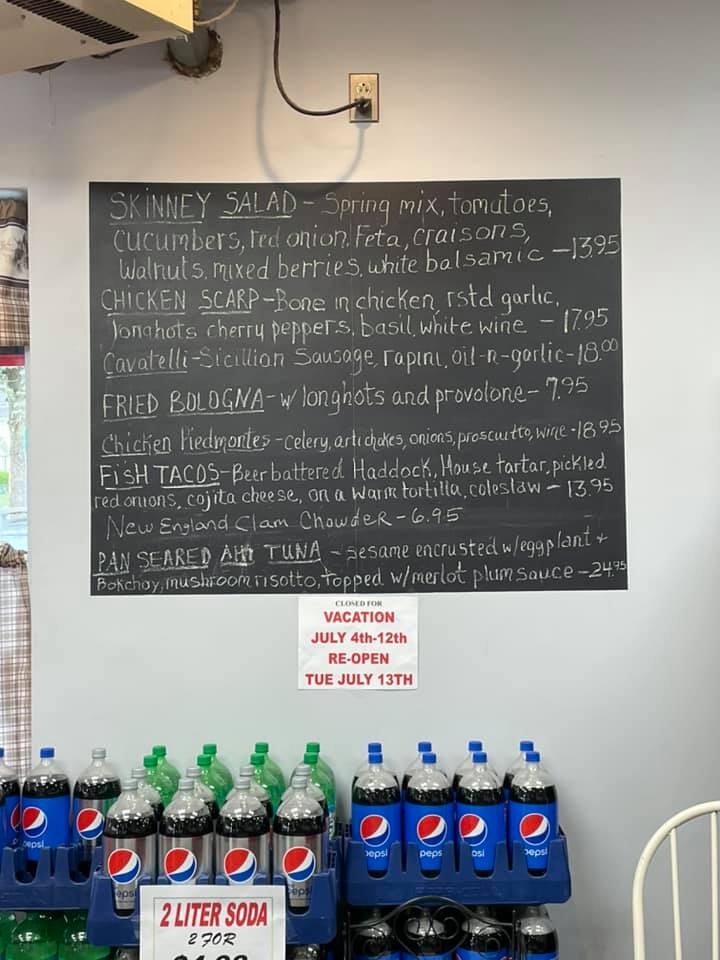 SKINNEY SALAD - Spring mix, tomatoes,
cucumbers, red onion, Feta, craisons,
Walnuts, mixed berries, white balsamic - 13.95
CHICKEN SCARP - Bone in chicken, rstd garlic,
longhots cherry peppers, basil, white wine - 17.95
Cavatelli - Sicillian Sausage, rapini, oil-n-garlic - 18.00
FRIED BOLOGNA - w/ longhots and provolone - 7.95
Chicken Piedmontes - celery, artichokes, onions, proscuitto, wine - 18.95
FiSH TACOS - Beer battered Haddock, House tartar, pickled
red onions, cojita cheese, on a warm tortilla, coleslaw - 13.95
New England Clam Chowder - 6.95
PAN SEARED AHI TUNA - sesame encrusted w/eggplant +
Bokchoy, mushroom risotto, topped w/merlot plum sauce - 24.95
CLOSED FOR
VACATION
JULY 4th-12th
RE-OPEN
TUE JULY 13TH
pepsi
pepsi
pepsi
pepsi
pepsi
pepsi
pepsi
2 LITER SODA
2 FOR